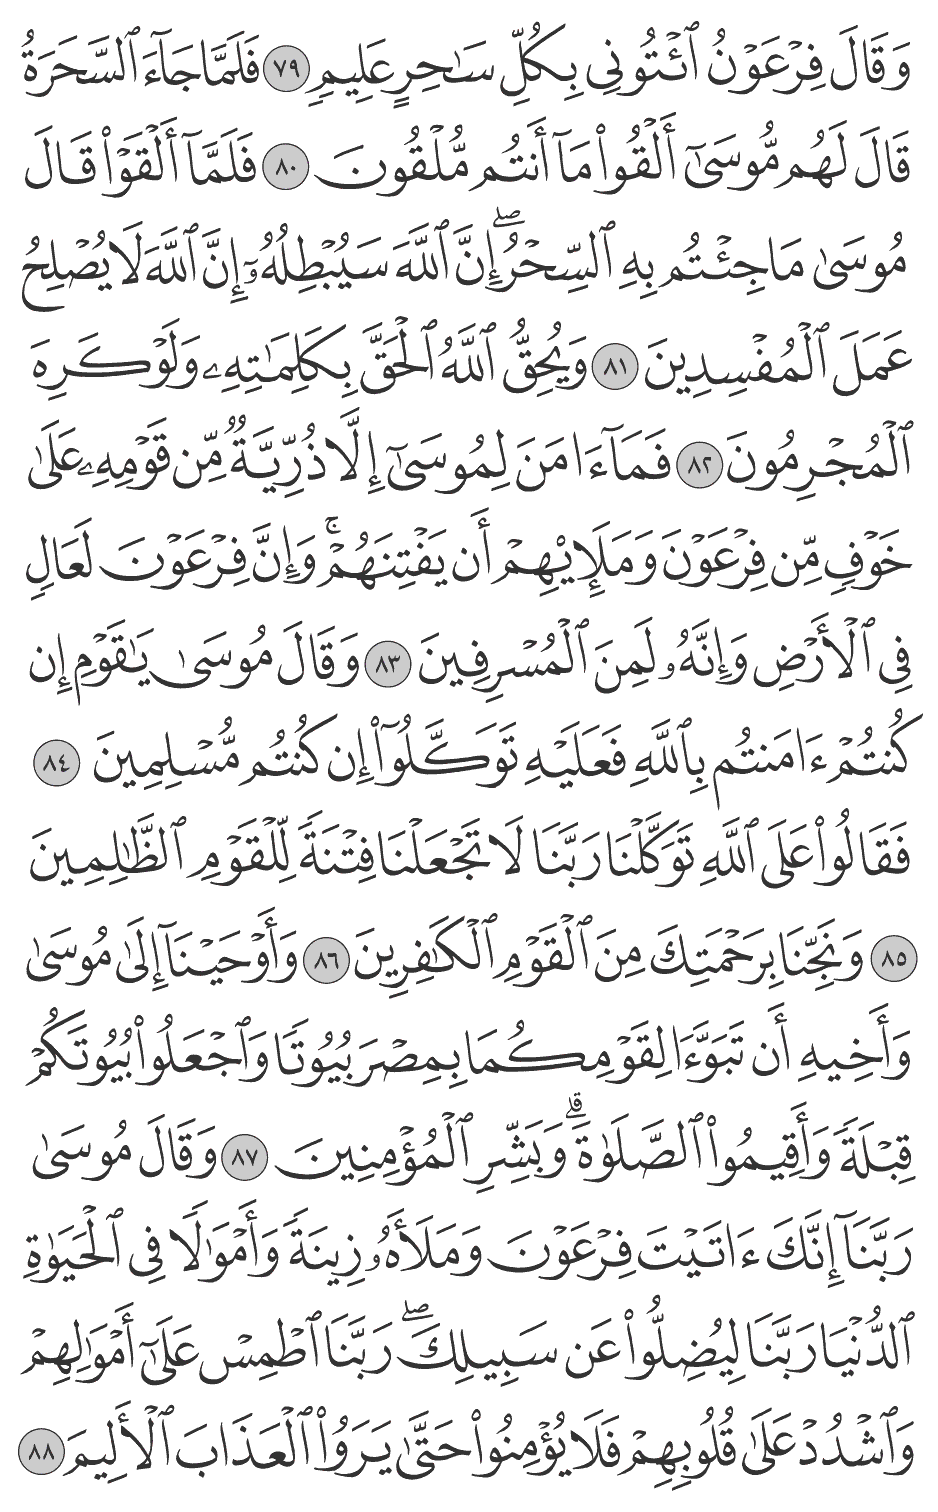 وَقَالَ فِرْعَوْنُ ٱئْتُونِى بِكُلِّ سَـٰحِرٍ عَلِيمٍ ٧٩ فَلَمَّا جَآءَ ٱلسَّحَرَةُ
قَالَ لَهُم مُّوسَىٰٓ أَلْقُوا۟ مَآ أَنتُم مُّلْقُونَ ٨٠ فَلَمَّآ أَلْقَوْا۟ قَالَ
مُوسَىٰ مَا جِئْتُم بِهِ ٱلسِّحْرُ ۖ إِنَّ ٱللَّهَ سَيُبْطِلُهُۥٓ إِنَّ ٱللَّهَ لَا يُصْلِحُ
عَمَلَ ٱلْمُفْسِدِينَ ٨١ وَيُحِقُّ ٱللَّهُ ٱلْحَقَّ بِكَلِمَـٰتِهِۦ وَلَوْ كَرِهَ
ٱلْمُجْرِمُونَ ٨٢ فَمَآ ءَامَنَ لِمُوسَىٰٓ إِلَّا ذُرِّيَّةٌ مِّن قَوْمِهِۦ عَلَىٰ
خَوْفٍ مِّن فِرْعَوْنَ وَمَلَإِي۟هِمْ أَن يَفْتِنَهُمْ ۚ وَإِنَّ فِرْعَوْنَ لَعَالٍ
فِى ٱلْأَرْضِ وَإِنَّهُۥ لَمِنَ ٱلْمُسْرِفِينَ ٨٣ وَقَالَ مُوسَىٰ يَـٰقَوْمِ إِن
كُنتُمْ ءَامَنتُم بِٱللَّهِ فَعَلَيْهِ تَوَكَّلُوٓا۟ إِن كُنتُم مُّسْلِمِينَ ٨٤
فَقَالُوا۟ عَلَى ٱللَّهِ تَوَكَّلْنَا رَبَّنَا لَا تَجْعَلْنَا فِتْنَةً لِّلْقَوْمِ ٱلظَّـٰلِمِينَ
٨٥ وَنَجِّنَا بِرَحْمَتِكَ مِنَ ٱلْقَوْمِ ٱلْكَـٰفِرِينَ ٨٦ وَأَوْحَيْنَآ إِلَىٰ مُوسَىٰ
وَأَخِيهِ أَن تَبَوَّءَا لِقَوْمِكُمَا بِمِصْرَ بُيُوتًا وَٱجْعَلُوا۟ بُيُوتَكُمْ
قِبْلَةً وَأَقِيمُوا۟ ٱلصَّلَوٰةَ ۗ وَبَشِّرِ ٱلْمُؤْمِنِينَ ٨٧ وَقَالَ مُوسَىٰ
رَبَّنَآ إِنَّكَ ءَاتَيْتَ فِرْعَوْنَ وَمَلَأَهُۥ زِينَةً وَأَمْوَٰلًا فِى ٱلْحَيَوٰةِ
ٱلدُّنْيَا رَبَّنَا لِيُضِلُّوا۟ عَن سَبِيلِكَ ۖ رَبَّنَا ٱطْمِسْ عَلَىٰٓ أَمْوَٰلِهِمْ
وَٱشْدُدْ عَلَىٰ قُلُوبِهِمْ فَلَا يُؤْمِنُوا۟ حَتَّىٰ يَرَوُا۟ ٱلْعَذَابَ ٱلْأَلِيمَ ٨٨